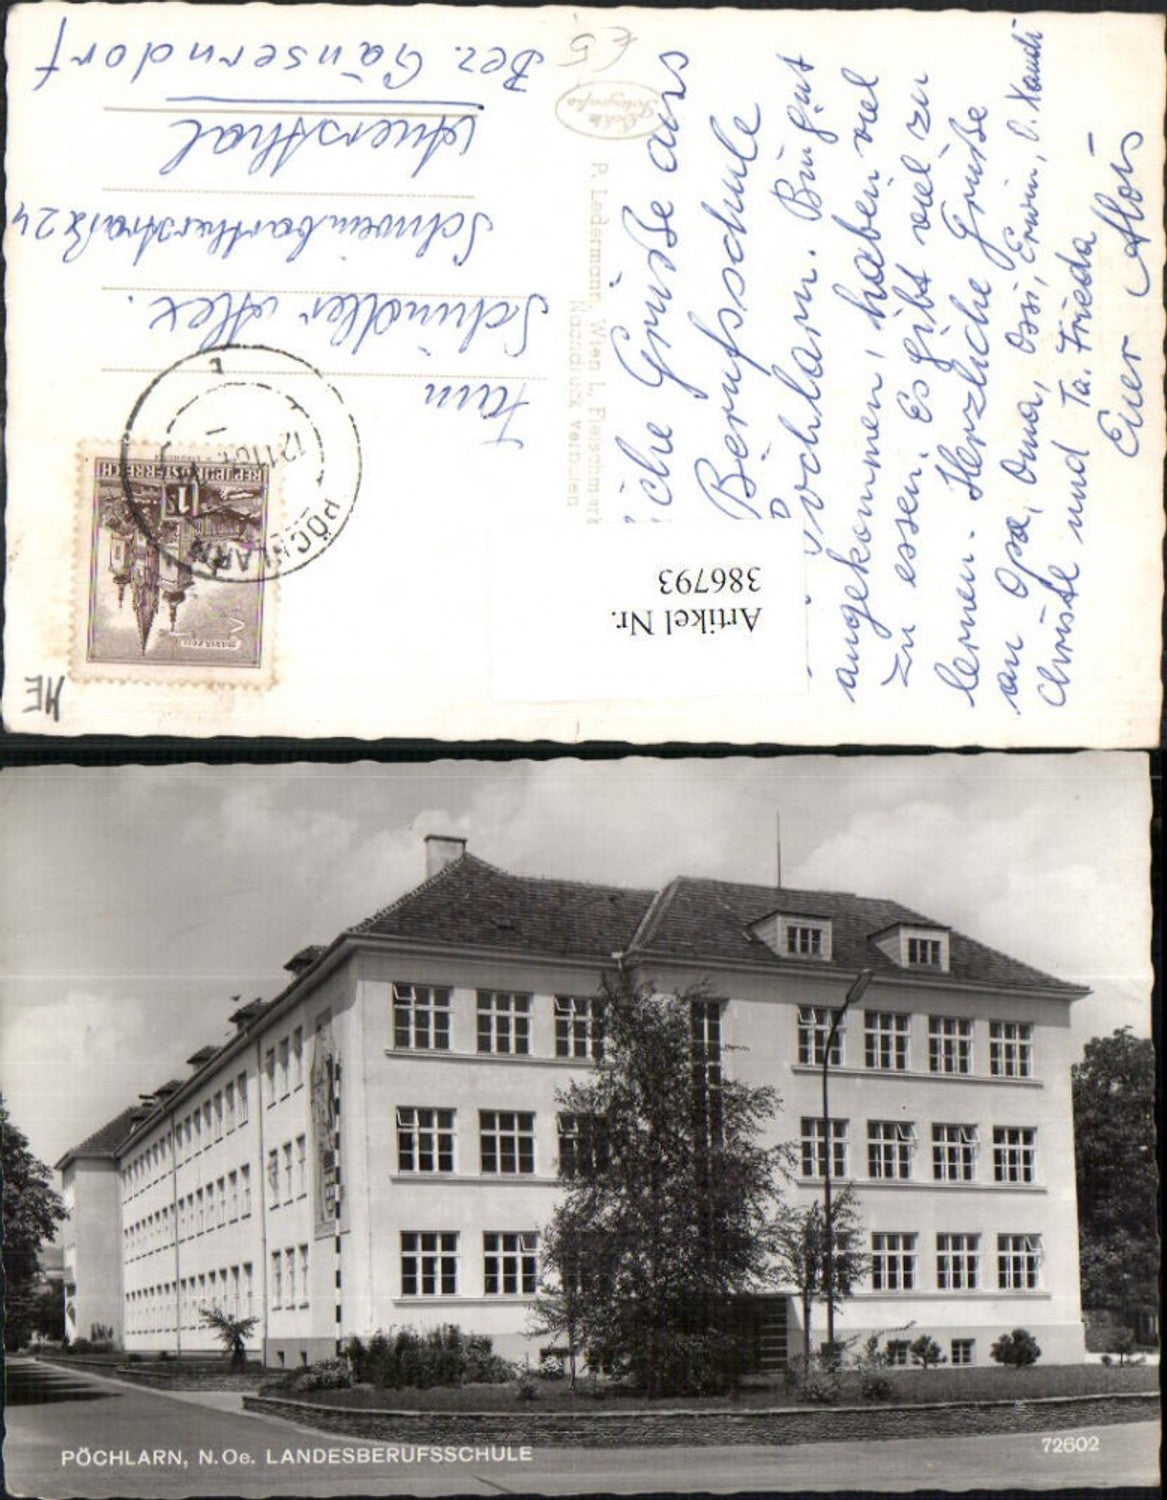 Fam
Schindler Alex.
Schweinbartherstraße 24
Auersthal
Bez. Gänserndorf
REPUBLIK ÖSTERREICH
1
MARIAZELL
PÖCHLARN
Echte
Fotografie
P. Ledermann, Wien I., Fleischmarkt
Nachdruck verboten
iche Grüße aus
Berufsschule
Pöchlarn. Bin gut
angekommen, haben viel
zu essen. Es gibt viel zu
lernen. Herzliche Grüße
an Opa, Oma, Ossi, Erwin, O. Xandi
Christe und Ta. Frieda
Euer Alois
Artikel Nr.
386793
ME
PÖCHLARN, N.Oe. LANDESBERUFSSCHULE
72602